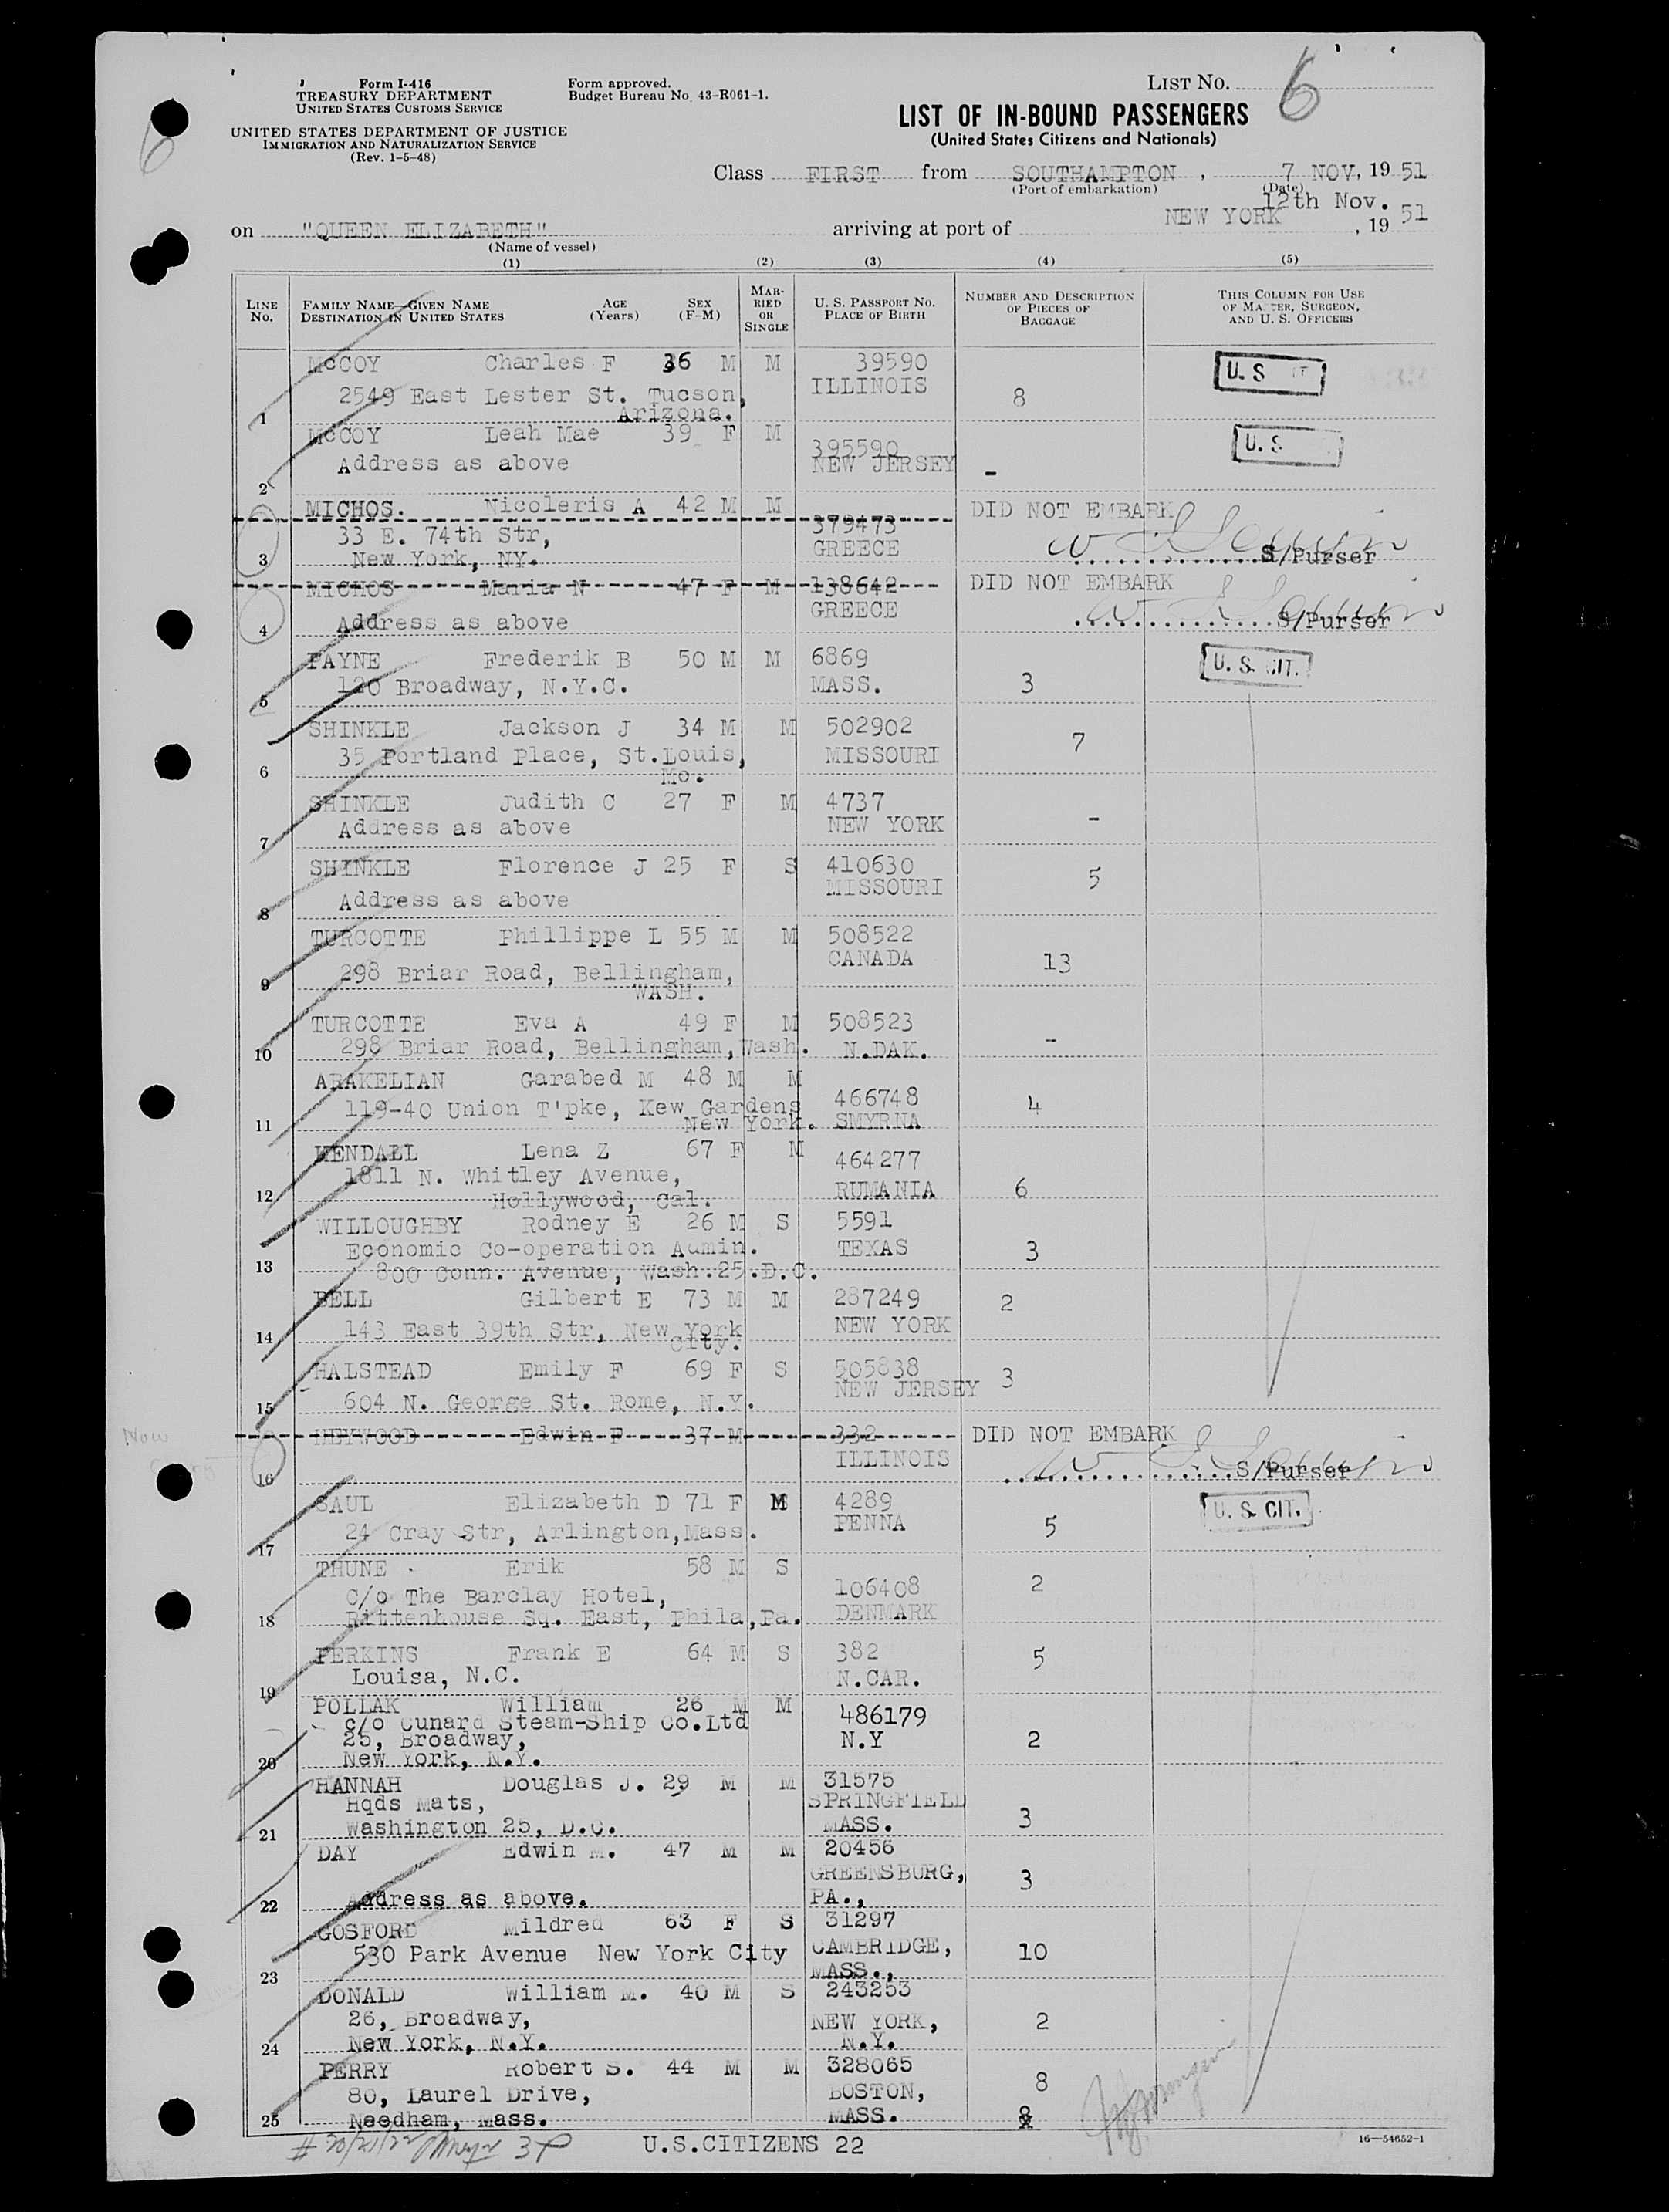 Form I-416
TREASURY DEPARTMENT
UNITED STATES CUSTOMS SERVICE
UNITED STATES DEPARTMENT OF JUSTICE
IMMIGRATION AND NATURALIZATION SERVICE
(Rev. 1-5-48)
Form approved.
Budget Bureau No. 43-R061-1.
LIST NO. 6
6
LIST OF IN-BOUND PASSENGERS
(United States Citizens and Nationals)
Class FIRST from SOUTHAMPTON, 7 NOV, 19 51
(Port of embarkation) (Date)
12th Nov.
on "QUEEN ELIZABETH" arriving at port of NEW YORK, 19 51
(Name of vessel)
(1) (2) (3) (4) (5)
LINE NO. FAMILY NAME—GIVEN NAME DESTINATION IN UNITED STATES AGE (Years) SEX (F-M) MARRIED OR SINGLE U. S. PASSPORT NO. PLACE OF BIRTH NUMBER AND DESCRIPTION OF PIECES OF BAGGAGE THIS COLUMN FOR USE OF MASTER, SURGEON, AND U. S. OFFICERS
McCOY Charles F 36 M M 39590 U. S
2549 East Lester St. Tucson, ILLINOIS 8
1 Arizona.
McCOY Leah Mae 39 F M 395590 U. S
Address as above NEW JERSEY -
2
MICHOS. Nicoleris A 42 M M DID NOT EMBARK
33 E. 74th Str, 379473
3 New York, NY. GREECE S/Purser
MICHOS Maria N 47 F M 138642 DID NOT EMBARK
GREECE
4 Address as above S/Purser
PAYNE Frederik B 50 M M 6869 U. S. CIT.
5 120 Broadway, N.Y.C. MASS. 3
SHINKLE Jackson J 34 M M 502902
35 Portland Place, St.Louis, MISSOURI 7
6 Mo.
SHINKLE Judith C 27 F M 4737
7 Address as above NEW YORK -
SHINKLE Florence J 25 F S 410630
MISSOURI 5
8 Address as above
TURCOTTE Phillippe L 55 M M 508522
298 Briar Road, Bellingham, CANADA 13
9 WASH.
TURCOTTE Eva A 49 F M 508523
10 298 Briar Road, Bellingham, Wash. N.DAK. -
ARAKELIAN Garabed M 48 M M
119-40 Union T'pke, Kew Gardens 466748 4
11 New York. SMYRNA
KENDALL Lena Z 67 F M 464277
1811 N. Whitley Avenue,
12 Hollywood, Cal. RUMANIA 6
WILLOUGHBY Rodney E 26 M S 5591
Economic Co-operation Admin. TEXAS 3
13 800 Conn. Avenue, Wash.25.D.C.
BELL Gilbert E 73 M M 287249 2
143 East 39th Str, New York NEW YORK
14 City.
HALSTEAD Emily F 69 F S 505838 3
NEW JERSEY
15 604 N. George St. Rome, N.Y.
Now
HEYWOOD Edwin F 37 M 332 DID NOT EMBARK
ILLINOIS
16 S/Purser
SAUL Elizabeth D 71 F M 4289 U. S. CIT.
24 Cray Str, Arlington,Mass. PENNA 5
17
THUNE Erik 58 M S
C/o The Barclay Hotel, 106408 2
18 Rittenhouse Sq. East, Phila,Pa. DENMARK
PERKINS Frank E 64 M S 382 5
Louisa, N.C. N.CAR.
19
POLLAK William 26 M M 486179
c/o Cunard Steam-Ship Co.Ltd
25, Broadway, N.Y 2
20 New York, N.Y.
HANNAH Douglas J. 29 M M 31575
Hqds Mats, SPRINGFIELD
21 Washington 25, D.C. MASS. 3
DAY Edwin M. 47 M M 20456
GREENSBURG, 3
22 Address as above. PA.,
GOSFORD Mildred 63 F S 31297
530 Park Avenue New York City CAMBRIDGE, 10
23 MASS.,
DONALD William M. 40 M S 243253
26, Broadway, NEW YORK, 2
24 New York, N.Y. N.Y.
PERRY Robert S. 44 M M 328065
80, Laurel Drive, BOSTON, 8
25 Needham, Mass. MASS.
U.S.CITIZENS 22
16—54652-1